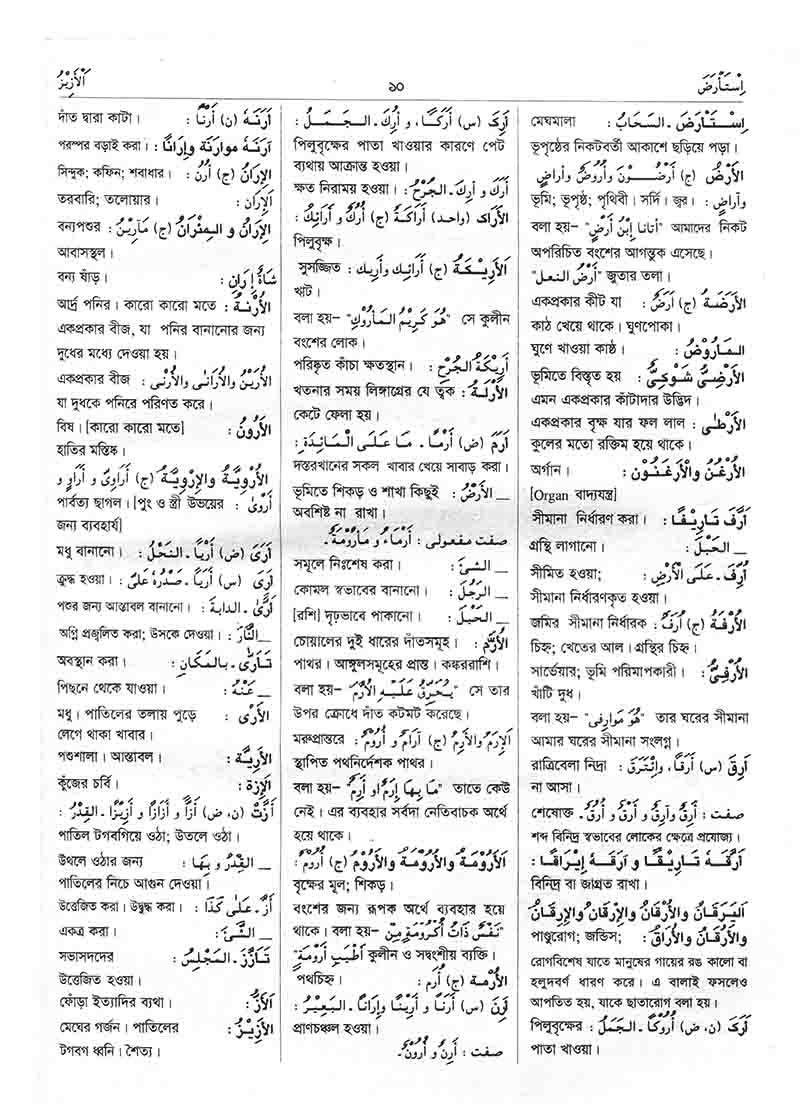 اِسْتَأْرَضَ
১০
اَلْأَزِيْزُ
اِسْتَأْرَضَ ـ السَّحَابُ : মেঘমালা
ভূপৃষ্ঠের নিকটবর্তী আকাশে ছড়িয়ে পড়া।
الأَرْضُ (ج) أَرْضُوْنَ وَأُرُوْضٌ وَأَرَاضٍ
وآراضٍ : ভূমি; ভূপৃষ্ঠ; পৃথিবী। সর্দি। জ্বর।
বলা হয়– "أتانا اِبْنُ أَرْضٍ" আমাদের নিকট
অপরিচিত বংশের আগন্তুক এসেছে।
"أَرْضُ النعل" জুতার তলা।
الأَرَضَةُ (ج) أَرَضٌ : একপ্রকার কীট যা
কাঠ খেয়ে থাকে। ঘুণপোকা।
المَأْرُوْضُ : ঘুণে খাওয়া কাষ্ঠ।
الأَرْضِيُّ شَوْكِيُّ : ভূমিতে বিস্তৃত হয়
এমন একপ্রকার কাঁটাদার উদ্ভিদ।
الأَرْطَى : একপ্রকার বৃক্ষ যার ফল লাল
কুলের মতো রক্তিম হয়ে থাকে।
الأُرْغُنُ وَالأَرْغَنُوْنُ : অর্গান।
[Organ বাদ্যযন্ত্র]
أَرَّفَ تَأْرِيْفًا : সীমানা নির্ধারণ করা।
ــ الحَبْلَ : গ্রন্থি লাগানো।
أُرِّفَ ـ عَلَى الأَرْضِ : সীমিত হওয়া;
সীমানা নির্ধারণকৃত হওয়া।
الأُرْفَةُ (ج) أُرَفٌ : জমির সীমানা নির্ধারক
চিহ্ন; খেতের আল। গ্রন্থির চিহ্ন।
الأُرْفِيُّ : সার্ভেয়ার; ভূমি পরিমাপকারী।
খাঁটি দুধ।
বলা হয়– "هُوَ مُؤَارِفِى" তার ঘরের সীমানা
আমার ঘরের সীমানা সংলগ্ন।
أَرِقَ (س) أَرَقًا، وائْتَرَقَ : রাত্রিবেলা নিদ্রা
না আসা।
صفت : أَرِقٌ وَآرِقٌ و أَرْقٌ و أُرُقٌ ـ শেষোক্ত
শব্দ বিনিদ্র স্বভাবের লোকের ক্ষেত্রে প্রযোজ্য।
أَرَّقَهُ تَأْرِيْقًا و آرَقَهُ إِيْرَاقًا :
বিনিদ্র বা জাগ্রত রাখা।
اليَرَقَانُ والأَرْقَانُ والإِرْقَانُ والإِرِقَانُ
والأَرَقَانُ والأُرَاقُ : পাণ্ডুরোগ; জন্ডিস;
রোগবিশেষ যাতে মানুষের গায়ের রঙ কালো বা
হলুদবর্ণ ধারণ করে। এ বালাই ফসলেও
আপতিত হয়, যাকে ছাতারোগ বলা হয়।
أَرَكَ (ن، ض) أُرُوْكًا ـ الجَمَلُ : পিলুবৃক্ষের
পাতা খাওয়া।
أَرِكَ (س) أَرَكًا، و أُرِكَ ـ الجَمَلُ :
পিলুবৃক্ষের পাতা খাওয়ার কারণে পেট
ব্যথায় আক্রান্ত হওয়া।
أَرَكَ و أَرِكَ ـ الجُرْحُ : ক্ষত নিরাময় হওয়া।
الأَرَاكُ (واحد) أَرَاكَةٌ (ج) أُرُكٌ و أَرَائِكُ :
পিলুবৃক্ষ।
الأَرِيْكَةُ (ج) أَرَائِكُ وأَرِيك : সুসজ্জিত
খাট।
বলা হয়– "هُوَ كَرِيْمُ المَأْرُوْكِ" সে কুলীন
বংশের লোক।
أَرِيْكَةُ الجُرْحِ : পরিষ্কৃত কাঁচা ক্ষতস্থান।
الأُرْلَةُ : খতনার সময় লিঙ্গাগ্রের যে ত্বক
কেটে ফেলা হয়।
أَرَمَ (ض) أَرْمًا ـ مَا عَلَى المَائِدَةِ :
দস্তরখানের সকল খাবার খেয়ে সাবাড় করা।
ــ الأَرْضَ : ভূমিতে শিকড় ও শাখা কিছুই
অবশিষ্ট না রাখা।
صفت مفعولى : أَرْمَاءُ و مَأْرُوْمَةٌ ـ
ــ الشيْئَ : সমূলে নিঃশেষ করা।
ــ الرَّجُلَ : কোমল স্বভাবের বানানো।
ــ الحَبْلَ : [রশি] দৃঢ়ভাবে পাকানো।
الأُرَّمُ : চোয়ালের দুই ধারের দাঁতসমূহ।
পাথর। আঙ্গুলসমূহের প্রান্ত। কঙ্কররাশি।
বলা হয়– "يُحَرِّقُ عَلَيْهِ الأُرَّمَ" সে তার
উপর ক্রোধে দাঁত কটমট করেছে।
الإِرَمُ والأَرِمُ (ج) آرَامٌ و أُرُوْمٌ : মরুপ্রান্তরে
স্থাপিত পথনির্দেশক পাথর।
বলা হয়– "مَا بِهَا إِرَمٌ أو أَرِمٌ" তাতে কেউ
নেই। এর ব্যবহার সর্বদা নেতিবাচক অর্থে
হয়ে থাকে।
الأَرُوْمَةُ والأُرُوْمَةُ والأَرُوْمُ (ج) أُرُوْمٌ :
বৃক্ষের মূল; শিকড়।
বংশের জন্য রূপক অর্থে ব্যবহার হয়ে
থাকে। বলা হয়– "نَفْسٌ ذَاتُ أُكْرُوْمَةٍ مِنْ
أَطْيَبِ أَرُوْمَةٍ" কুলীন ও সদ্বংশীয় ব্যক্তি।
الأُرْمة (ج) أُرَم : পথচিহ্ন।
أَرِنَ (س) أَرَنًا و أَرِيْنًا وإِرَانًا ـ البَعِيْرُ :
প্রাণচঞ্চল হওয়া।
صفت : أَرِنٌ و أَرُوْنٌ ـ
أَرَنَهُ (ن) أَرْنًا : দাঁত দ্বারা কাটা।
آرَنَهُ موارنَة وإرَانًا : পরস্পর বড়াই করা।
الإرَانُ (ج) أُرُنٌ : সিন্দুক; কফিন; শবাধার।
الإرَان : তরবারি; তলোয়ার।
الإرَانُ و المِئْرَانُ (ج) مَآرِيْنُ : বন্যপশুর
আবাসস্থল।
شَاةُ إِرَانٍ : বন্য ষাঁড়।
الأُرْنَةُ : আর্দ্র পনির। কারো কারো মতে
একপ্রকার বীজ, যা পনির বানানোর জন্য
দুধের মধ্যে দেওয়া হয়।
الأَرِيْنُ والأُرَانَى والأُرْنَى : একপ্রকার বীজ
যা দুধকে পনিরে পরিণত করে।
الأَرُوْنُ : বিষ। [কারো কারো মতে]
হাতির মস্তিষ্ক।
الأُرْوِيَّةُ والإِرْوِيَّةُ (ج) أَرَاوِيُّ و أَرَاوٍ و
أَرْوَى : পার্বত্য ছাগল। [পুং ও স্ত্রী উভয়ের
জন্য ব্যবহার্য]
أَرَى (ض) أَرْيًا ـ النَحْلُ : মধু বানানো।
أَرِىَ (س) أَرْيًا ـ صَدْرُهُ عَلَىَّ : ক্রুদ্ধ হওয়া।
أَرَّى ـ الدابةَ : পশুর জন্য আস্তাবল বানানো।
ــ النَّارَ : অগ্নি প্রজ্বলিত করা; উসকে দেওয়া।
تَأَرَّى ـ بالمَكَانِ : অবস্থান করা।
ــ عَنْهُ : পিছনে থেকে যাওয়া।
الأَرْيُ : মধু। পাতিলের তলায় পুড়ে
লেগে থাকা খাবার।
الأَرِيَّةُ : পশুশালা। আস্তাবল।
الإرَة : কুঁজের চর্বি।
أَزَّتْ (ن، ض) أَزًّا و أَزَازًا و أَزِيْزًا ـ القِدْرُ :
পাতিল টগবগিয়ে ওঠা; উতলে ওঠা।
ــ القِدْرَ و بِهَا : উথলে ওঠার জন্য
পাতিলের নিচে আগুন দেওয়া।
أَزَّ ـ عَلَى كَذَا : উত্তেজিত করা। উদ্বুদ্ধ করা।
ــ الشَّيْئَ : একত্র করা।
تَأَزَّزَ ـ المَجْلِسُ : সভাসদদের
উত্তেজিত হওয়া।
الأَزُّ : ফোঁড়া ইত্যাদির ব্যথা।
الأَزِيْزُ : মেঘের গর্জন। পাতিলের
টগবগ ধ্বনি। শৈত্য।